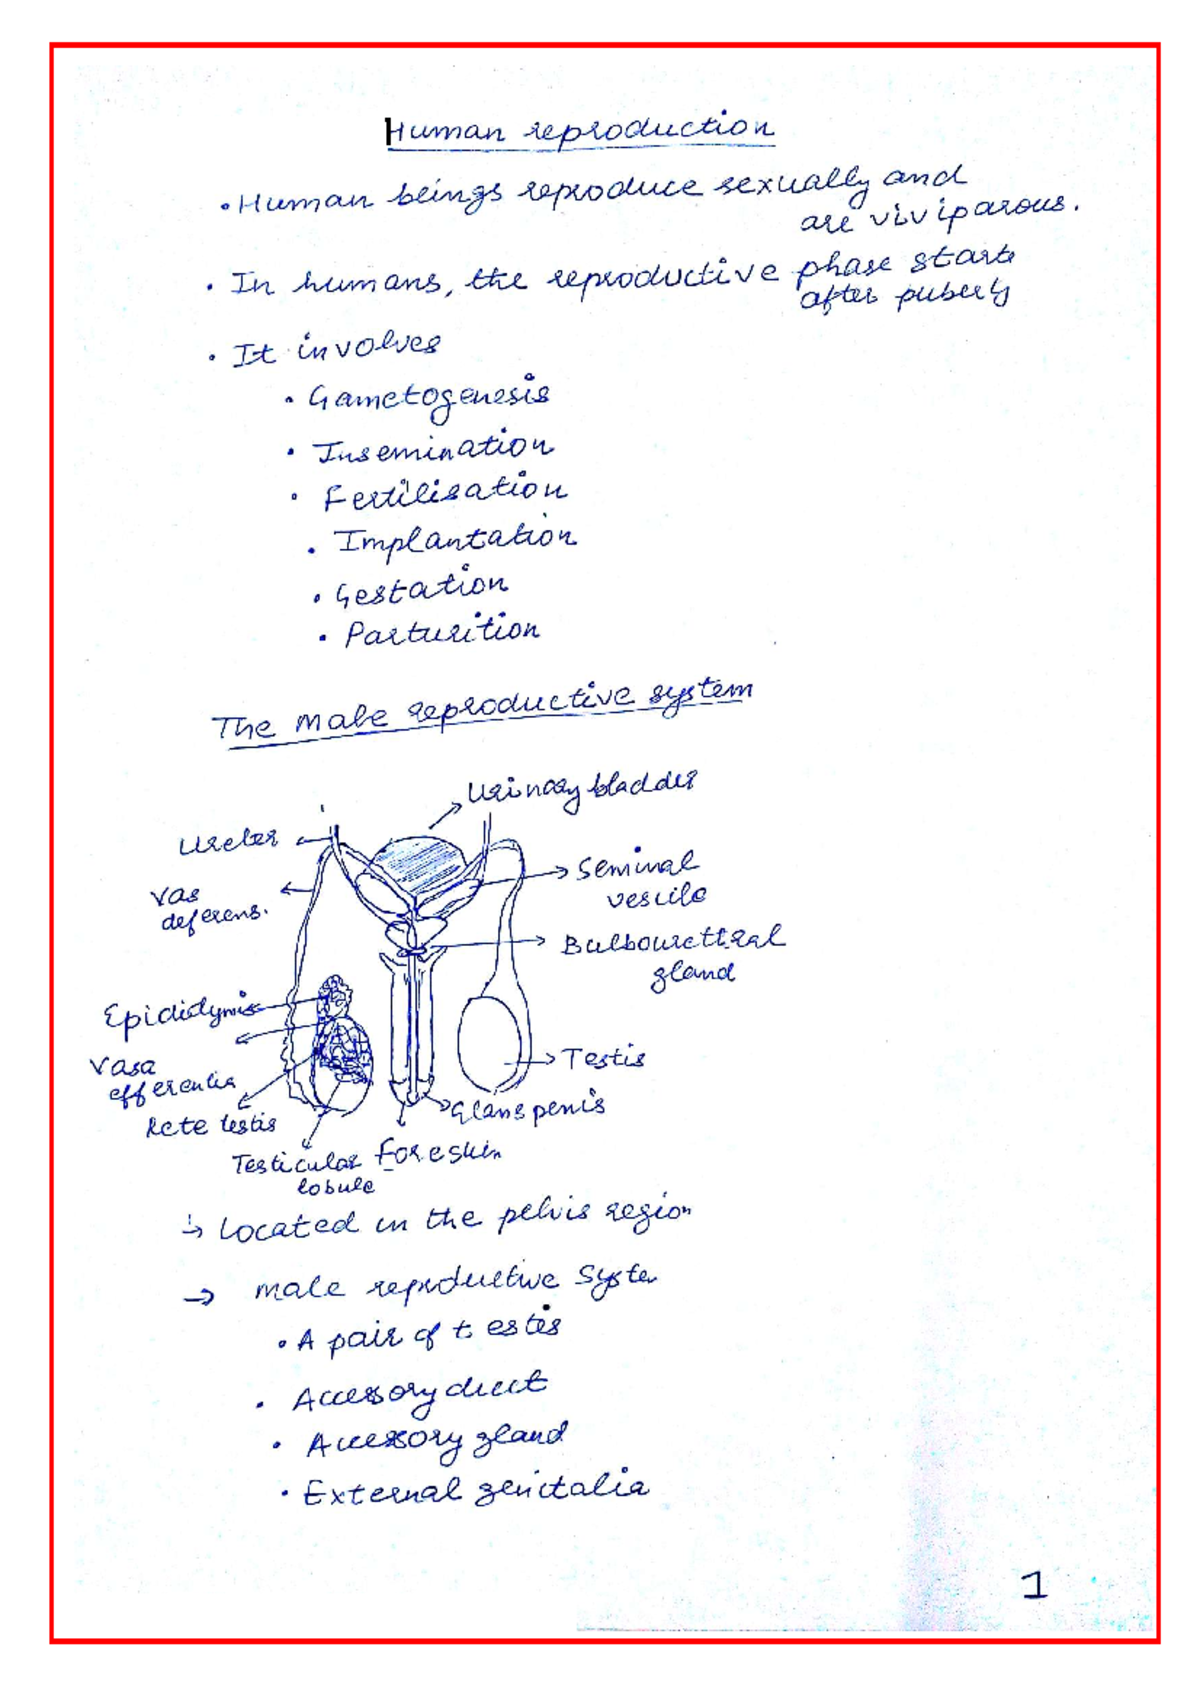 Human reproduction
• Human beings reproduce sexually and
are viviparous.
• In humans, the reproductive phase starts
after puberty
• It involves
• Gametogenesis
• Insemination
• Fertilisation
• Implantation
• Gestation
• Parturition
The male reproductive system
Urinary bladder
Ureter
Seminal
vescile
Vas
deferens.
Bulbourethral
gland
Epididymis
Vasa
efferentia
Testis
Rete testis
Glans penis
Foreskin
Testicular
lobule
↳ Located in the pelvis region
→ male reproductive System
• A pair of testis
• Accessory duct
• Accessory gland
• External genitalia
1